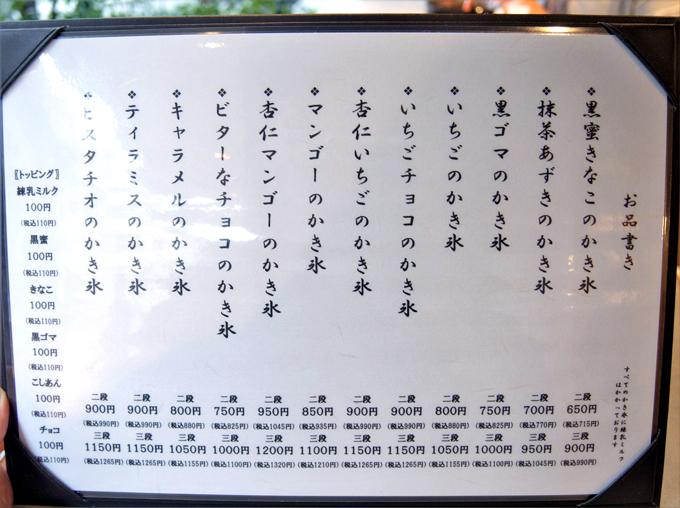 お品書き
すべてのかき氷に練乳ミルク
はかかっております
❖黒蜜きなこのかき氷
二段
650円
(税込715円)
三段
900円
(税込990円)
❖抹茶あずきのかき氷
二段
700円
(税込770円)
三段
950円
(税込1045円)
❖黒ゴマのかき氷
二段
750円
(税込825円)
三段
1000円
(税込1100円)
❖いちごのかき氷
二段
800円
(税込880円)
三段
1050円
(税込1155円)
❖いちごチョコのかき氷
二段
900円
(税込990円)
三段
1150円
(税込1265円)
❖杏仁いちごのかき氷
二段
900円
(税込990円)
三段
1150円
(税込1265円)
❖マンゴーのかき氷
二段
850円
(税込935円)
三段
1100円
(税込1210円)
❖杏仁マンゴーのかき氷
二段
950円
(税込1045円)
三段
1200円
(税込1320円)
❖ビターなチョコのかき氷
二段
750円
(税込825円)
三段
1000円
(税込1100円)
❖キャラメルのかき氷
二段
800円
(税込880円)
三段
1050円
(税込1155円)
❖ティラミスのかき氷
二段
900円
(税込990円)
三段
1150円
(税込1265円)
❖ピスタチオのかき氷
二段
900円
(税込990円)
三段
1150円
(税込1265円)
〖トッピング〗
練乳ミルク
100円
(税込110円)
黒蜜
100円
(税込110円)
きなこ
100円
(税込110円)
黒ゴマ
100円
(税込110円)
こしあん
100円
(税込110円)
チョコ
100円
(税込110円)